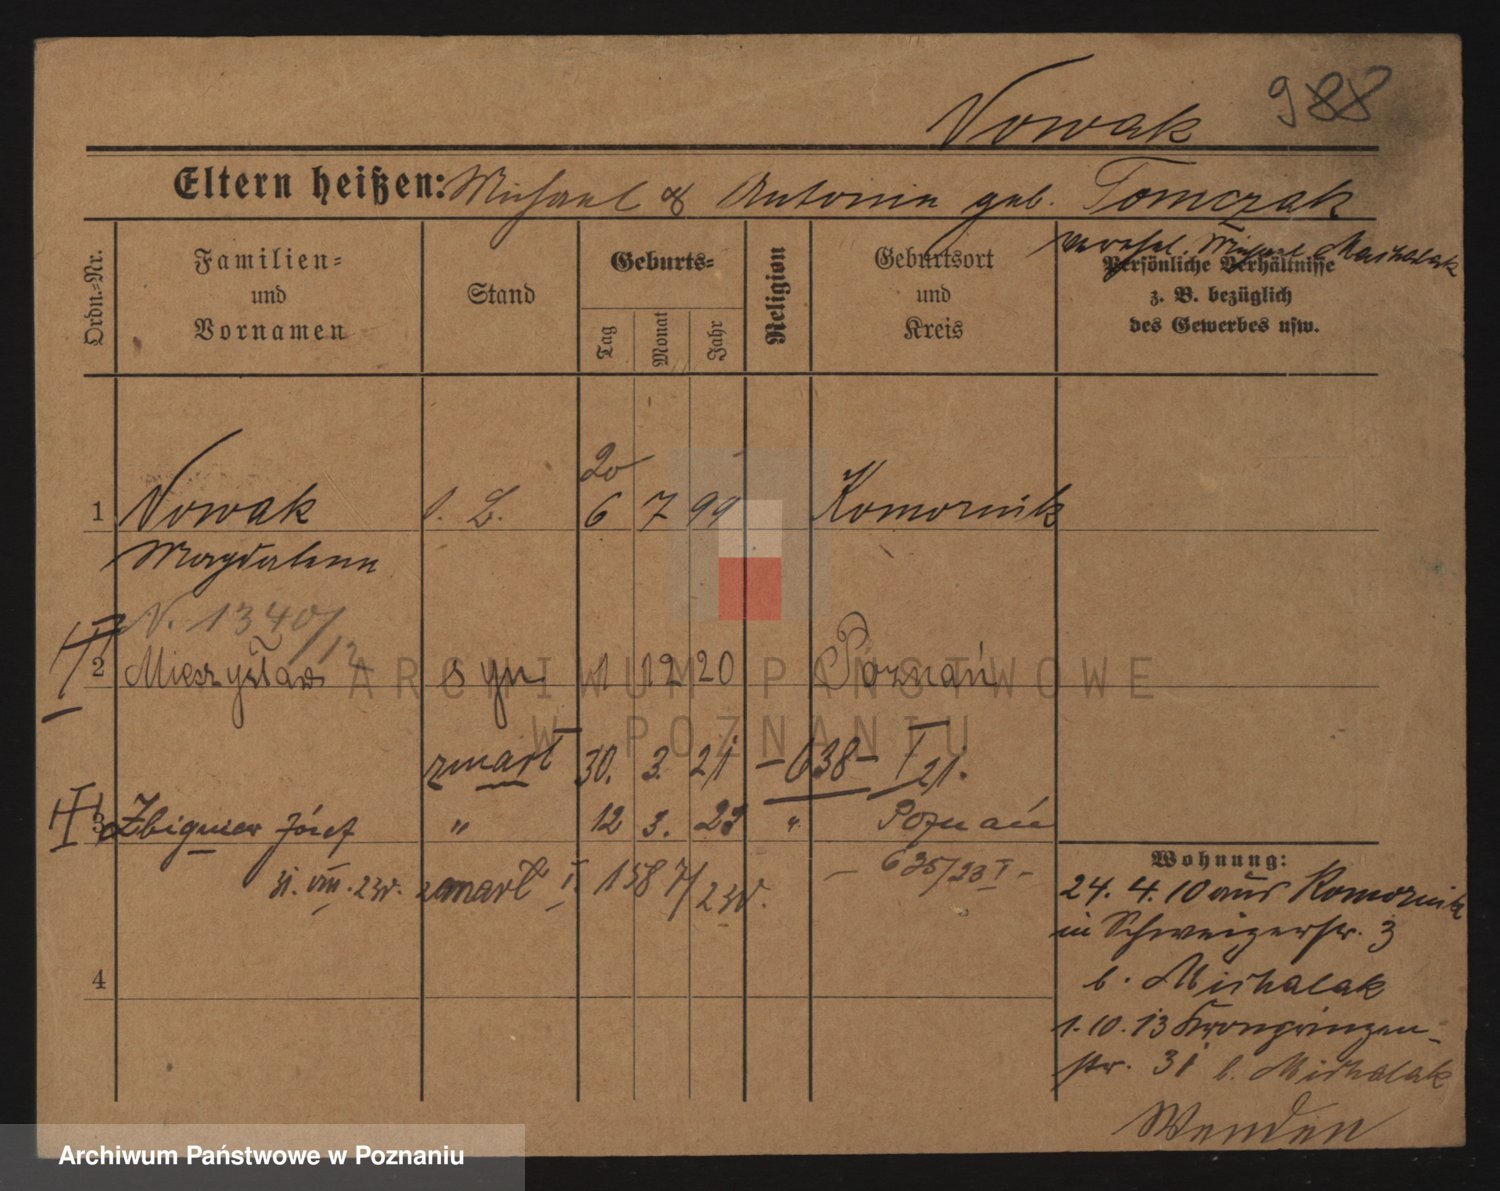 Nowak 988
Eltern heißen: Michael & Antonie geb. Tomczak
verehel. Michael Michalak
Ordn.-Nr.
Familien- und Vornamen
Stand
Geburts-
Tag Monat Jahr
Religion
Geburtsort und Kreis
Persönliche Verhältnisse
z. B. bezüglich
des Gewerbes usw.
20
1 Nowak l. L. 6 7 99 Komornik
Magdalena
N. 1340/12
2 Mieczysław syn 1 12 20 Poznań
ARCHIWUM PAŃSTWOWE
W POZNANIU
zmarł 30. 3. 21 – 638 – I 21.
3 Zbigniew Józef " 12 3. 23 " Poznań
31. VIII. 23r. zmarł I. 1587/23r. – 625/23 I –
Wohnung:
24. 4. 10 aus Komornik
in Schweizerstr. 3
b. Michalak
1. 10. 13 Kronprinzen-
str. 31 b. Michalak
4
Wenden
Archiwum Państwowe w Poznaniu